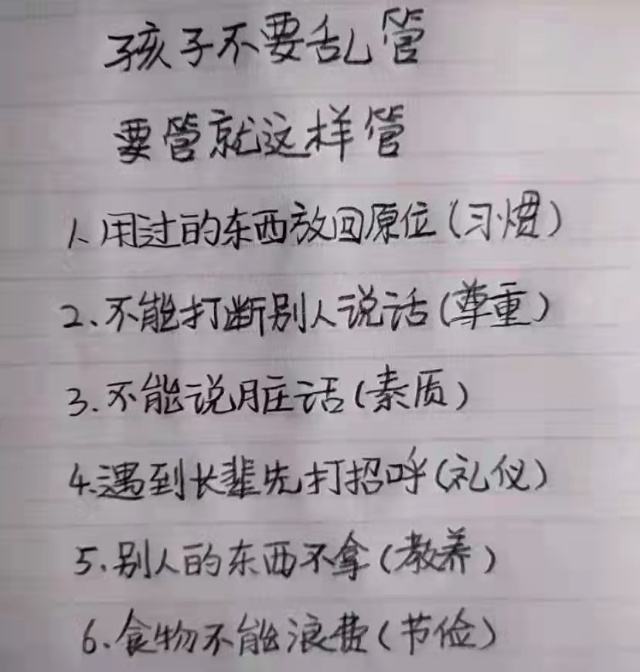 孩子不要乱管
要管就这样管
1、用过的东西放回原位(习惯)
2、不能打断别人说话(尊重)
3.不能说脏话(素质)
4.遇到长辈先打招呼(礼仪)
5.别人的东西不拿(教养)
6.食物不能浪费(节俭)